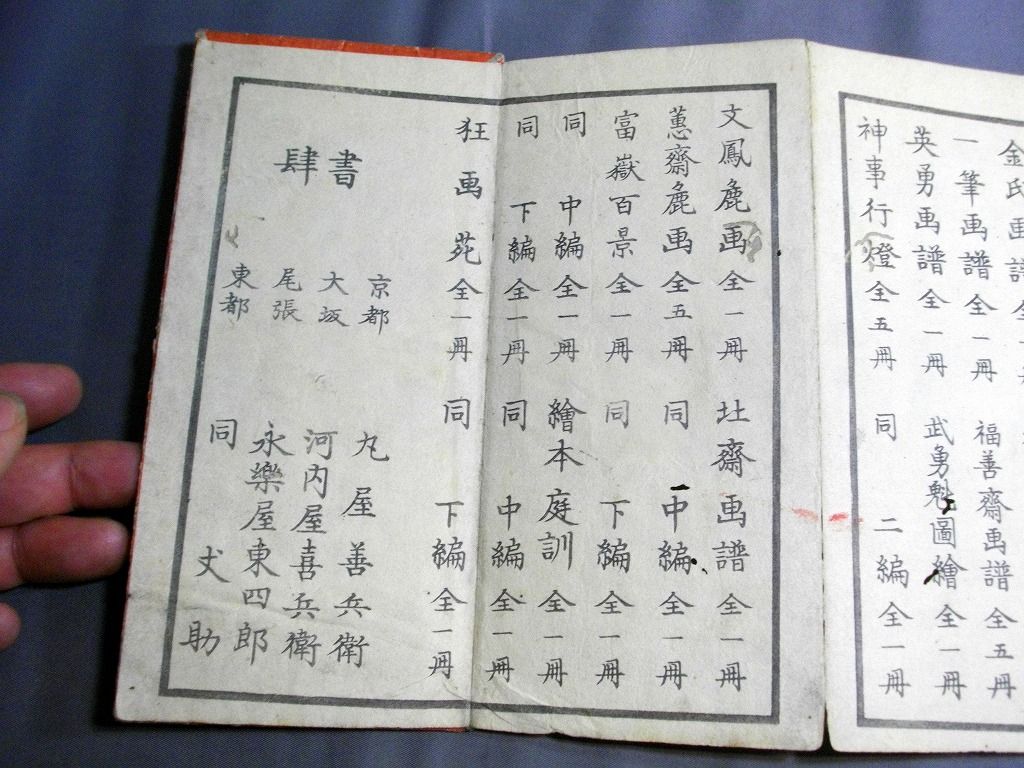 金氏画譜全
一筆画譜全一冊 福善齋画譜全五冊
英勇画譜全一冊 武勇魁圖繪全一冊
神事行燈全五冊 同 二編全一冊
文鳳麁画全一冊 北齋画譜全一冊
蕙齋麁画全五冊 同 中編全一冊
富嶽百景全一冊 同 下編全一冊
同 中編全一冊 繪本庭訓全一冊
同 下編全一冊 同 中編全一冊
狂画苑全一冊 同 下編全一冊
書肆
京都 丸屋善兵衛
大坂 河内屋喜兵衛
尾張 永樂屋東四郎
東都 同 丈助